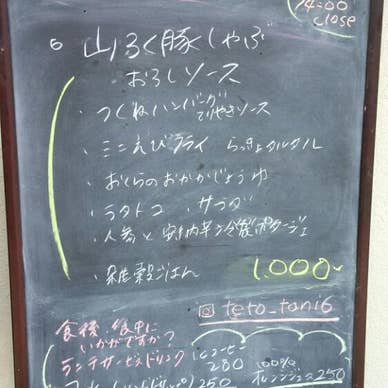 14:00
close
山ふく豚しゃぶ
おろしソース
・つくねハンバーグ てりやきソース
・ミニえびフライ らっきょタルタル
・おくらのおかかじょうゆ
・ラタトゥユ ・サラダ
・人参と安納芋の冷製ポタージュ
・雑穀ごはん 1,000-
teto_tani6
食後・食中に
いかがですか?
ランチサービスドリンク コーヒー 200 100% オレンジジュース 250
250